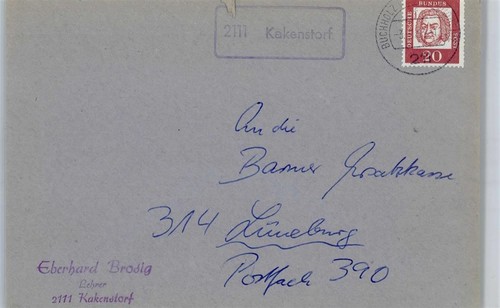 2111 Kakenstorf
BUCHHOLZ
DEUTSCHE BUNDESPOST
20
An die
Barmer Ersatzkasse
314 Lüneburg
Postfach 390
Eberhard Brodig
Lehrer
2111 Kakenstorf